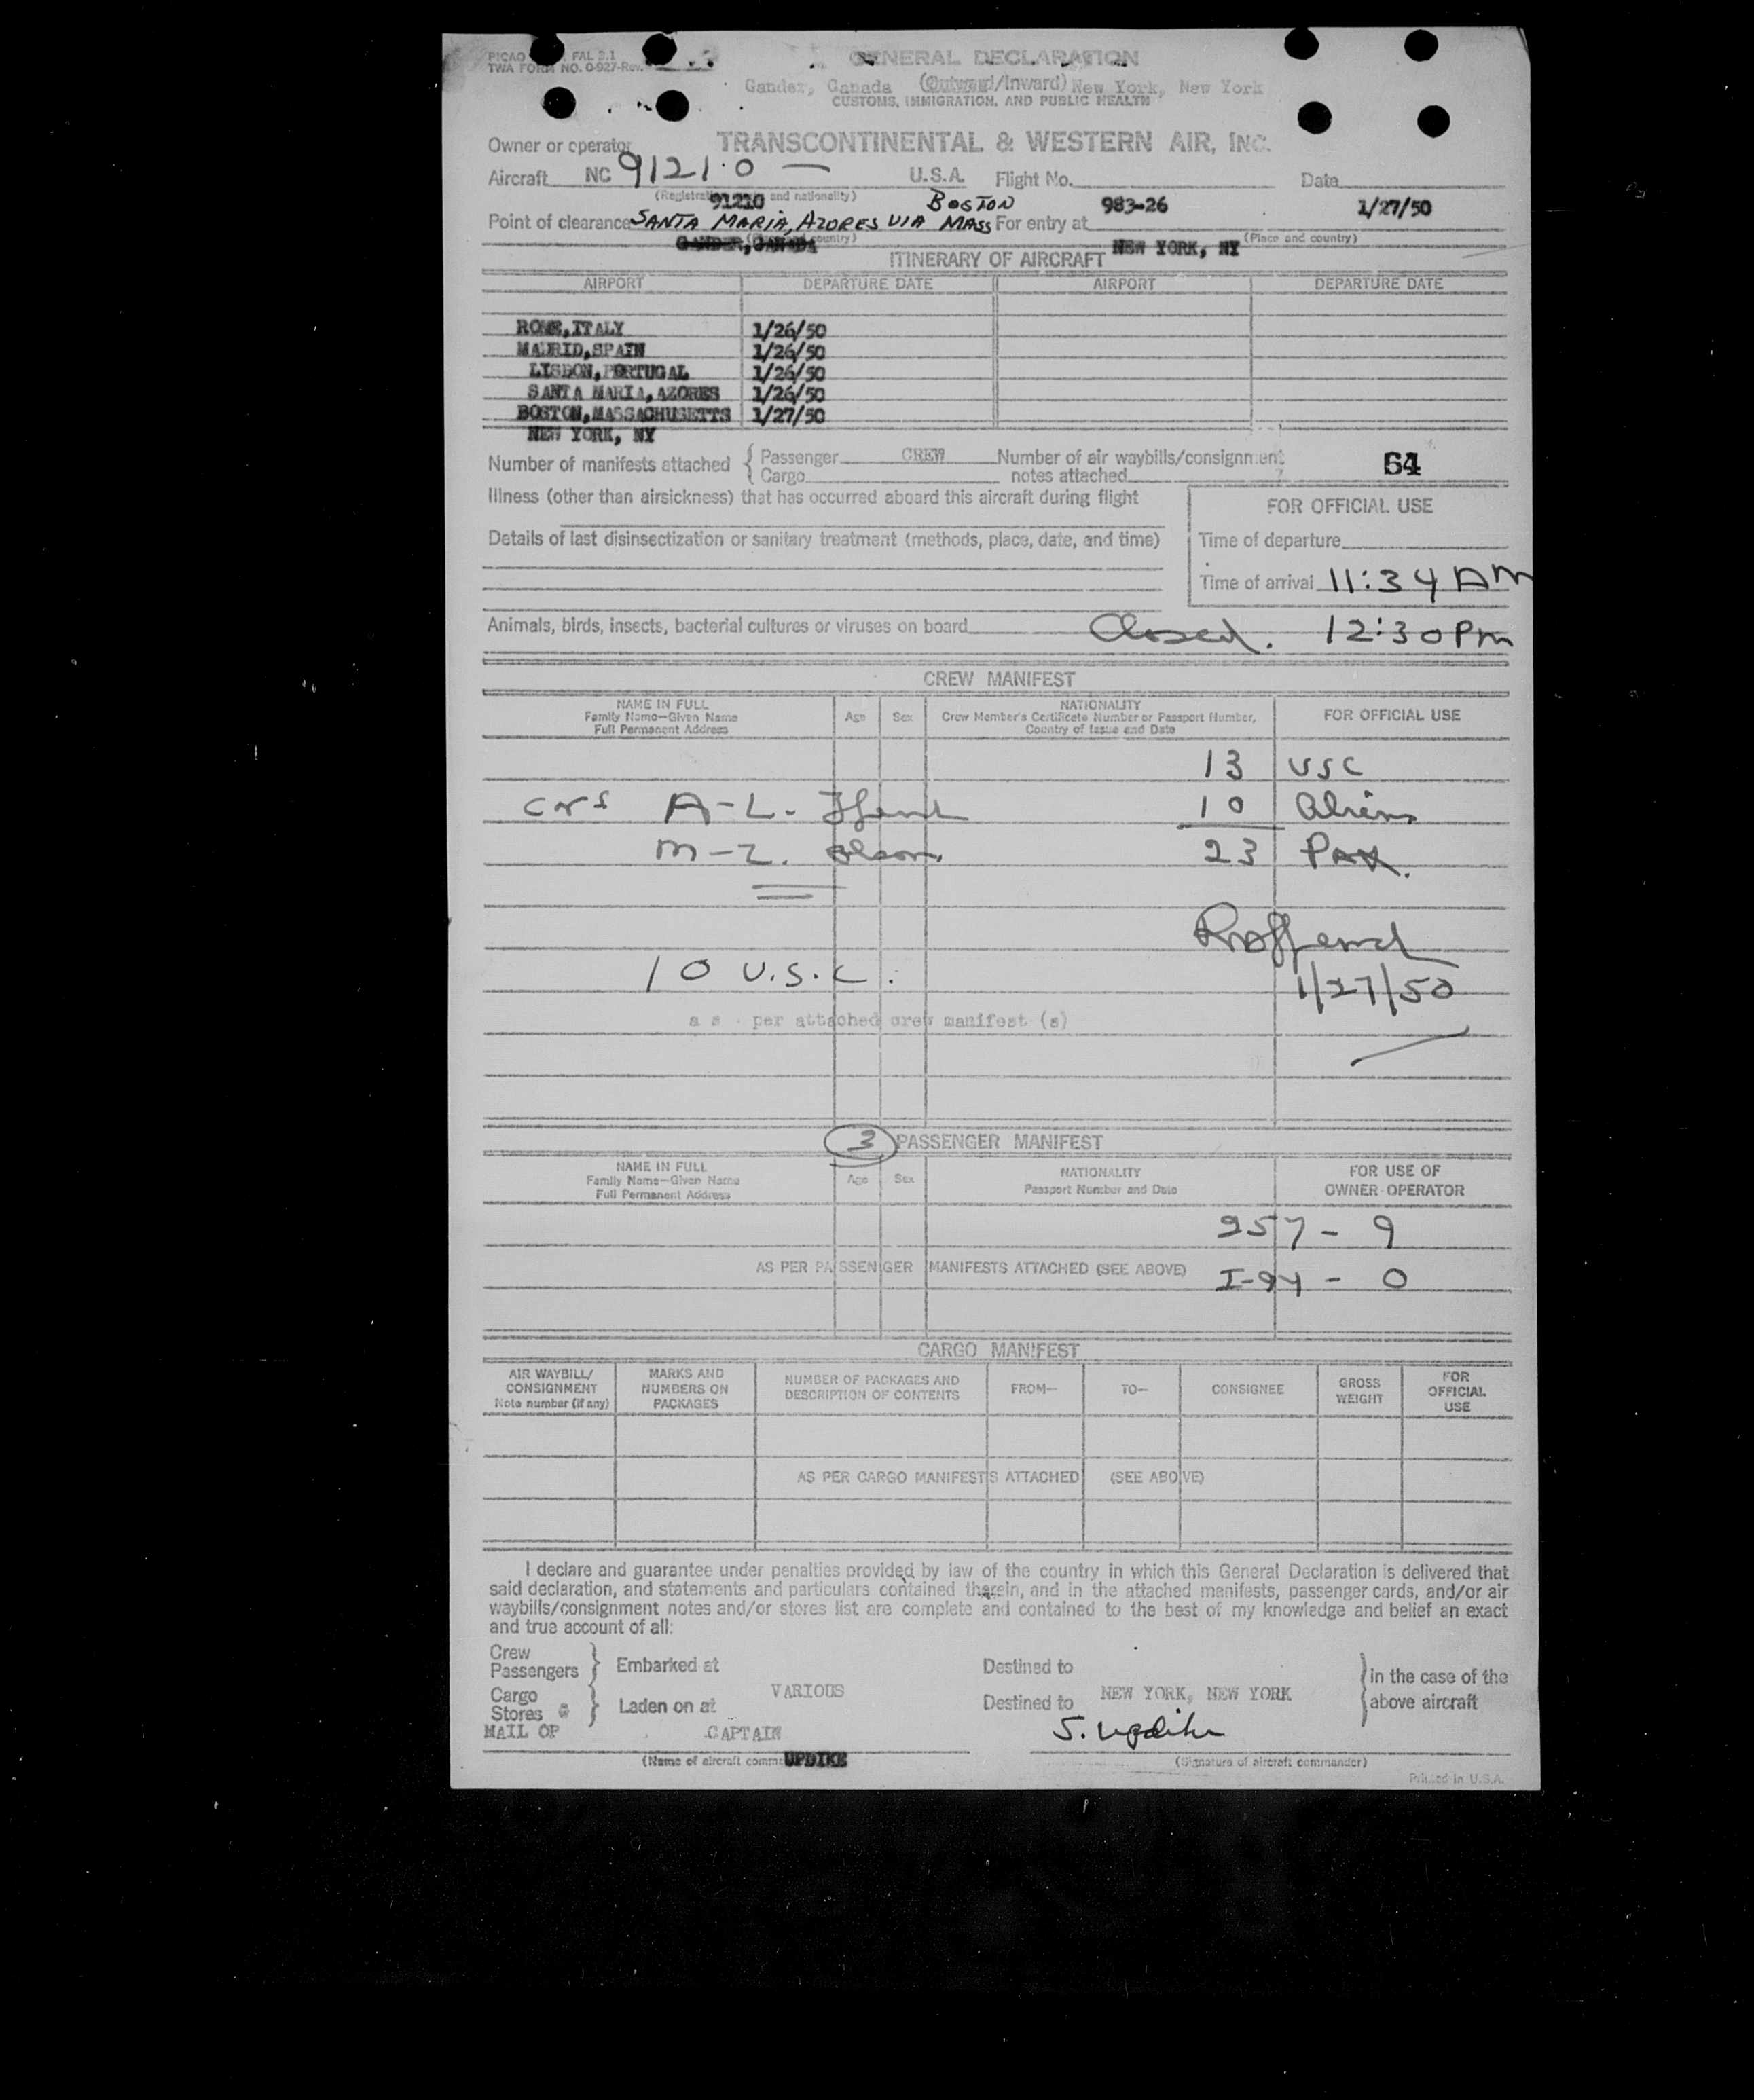 PICAO FAL 2.1
TWA FORM NO. 0-927-Rev.
GENERAL DECLARATION
Gander, Canada (Outward/Inward) New York, New York
CUSTOMS, IMMIGRATION, AND PUBLIC HEALTH
Owner or operator TRANSCONTINENTAL & WESTERN AIR, INC.
Aircraft NC 91210 — U.S.A. Flight No. Date
(Registration and nationality) 91210 983-26 1/27/50
Point of clearance SANTA MARIA, AZORES VIA BOSTON MASS For entry at
GANDER, CANADA (Place and country) NEW YORK, NY (Place and country)
ITINERARY OF AIRCRAFT
AIRPORT DEPARTURE DATE AIRPORT DEPARTURE DATE
ROME, ITALY 1/26/50
MADRID, SPAIN 1/26/50
LISBON, PORTUGAL 1/26/50
SANTA MARIA, AZORES 1/26/50
BOSTON, MASSACHUSETTS 1/27/50
NEW YORK, NY
Number of manifests attached { Passenger CREW Number of air waybills/consignment 64
Cargo notes attached
Illness (other than airsickness) that has occurred aboard this aircraft during flight
FOR OFFICIAL USE
Details of last disinsectization or sanitary treatment (methods, place, date, and time)
Time of departure
Time of arrival 11:34 AM
Animals, birds, insects, bacterial cultures or viruses on board Closed. 12:30 PM
CREW MANIFEST
NAME IN FULL
Family Name—Given Name
Full Permanent Address
Age Sex
NATIONALITY
Crew Member's Certificate Number or Passport Number,
Country of Issue and Date
FOR OFFICIAL USE
13 USC
A-L. 10 Aliens
M-Z. Olson 23 Pax.
10 U.S.C.
1/27/50
as per attached crew manifest (s)
3 PASSENGER MANIFEST
NAME IN FULL
Family Name—Given Name
Full Permanent Address
Age Sex
NATIONALITY
Passport Number and Date
FOR USE OF
OWNER-OPERATOR
257 - 9
AS PER PASSENGER MANIFESTS ATTACHED (SEE ABOVE) I-94 - 0
CARGO MANIFEST
AIR WAYBILL/
CONSIGNMENT
Note number (if any)
MARKS AND
NUMBERS ON
PACKAGES
NUMBER OF PACKAGES AND
DESCRIPTION OF CONTENTS
FROM—
TO—
CONSIGNEE
GROSS
WEIGHT
FOR
OFFICIAL
USE
AS PER CARGO MANIFESTS ATTACHED (SEE ABOVE)
I declare and guarantee under penalties provided by law of the country in which this General Declaration is delivered that
said declaration, and statements and particulars contained therein, and in the attached manifests, passenger cards, and/or air
waybills/consignment notes and/or stores list are complete and contained to the best of my knowledge and belief an exact
and true account of all:
Crew
Passengers } Embarked at Destined to
VARIOUS NEW YORK, NEW YORK
in the case of the
above aircraft
Cargo
Stores } Laden on at Destined to
MAIL OP CAPTAIN S. Updike
(Name of aircraft comm UPDIKE (Signature of aircraft commander)
Printed in U.S.A.